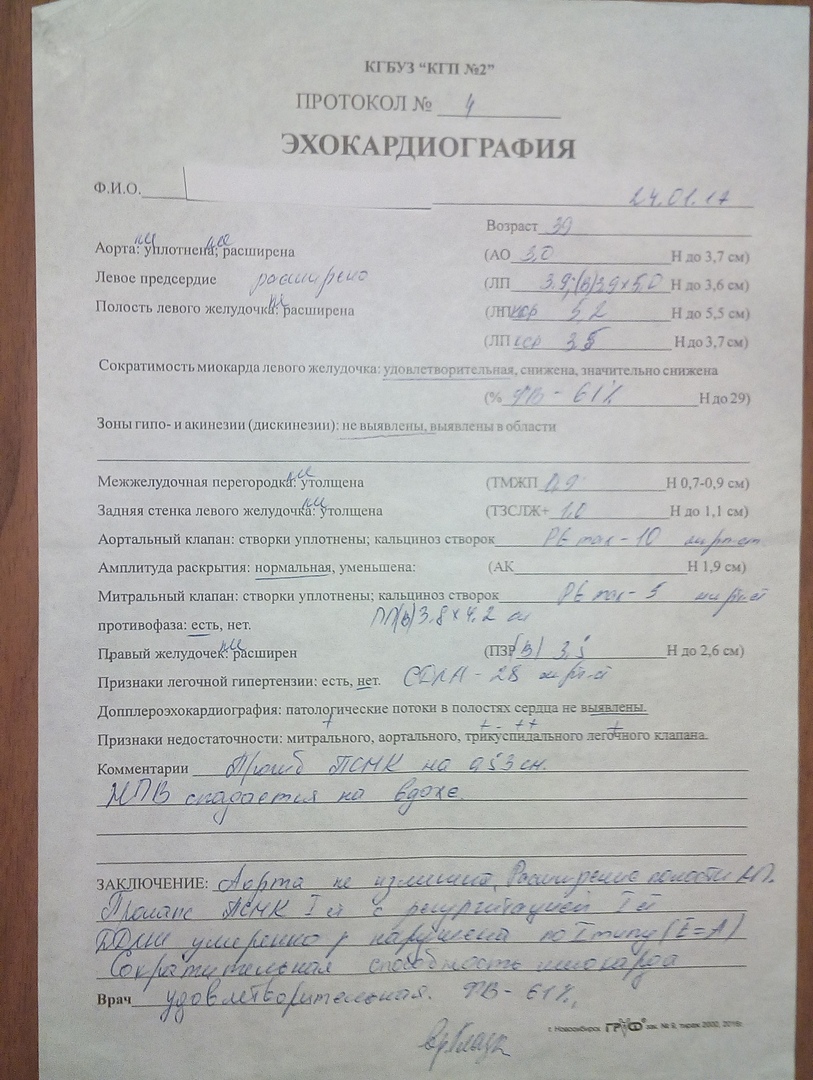 КГБУЗ “КГП №2”
ПРОТОКОЛ № 4
ЭХОКАРДИОГРАФИЯ
Ф.И.О. 24.01.17
Возраст 39
Аорта: не уплотнена; не расширена (АО 3,0 Н до 3,7 см)
Левое предсердие расширено (ЛП 3.9;(В)3,9х5,0 Н до 3,6 см)
Полость левого желудочка: не расширена (ЛП кдр 5,2 Н до 5,5 см)
(ЛП кср 3,5 Н до 3,7 см)
Сократимость миокарда левого желудочка: удовлетворительная, снижена, значительно снижена
(% ФВ - 61% Н до 29)
Зоны гипо- и акинезии (дискинезии): не выявлены, выявлены в области
Межжелудочная перегородка: не утолщена (ТМЖП 0,9 Н 0,7-0,9 см)
Задняя стенка левого желудочка: не утолщена (ТЗСЛЖ+ 1,0 Н до 1,1 см)
Аортальный клапан: створки уплотнены; кальциноз створок max - 10
Амплитуда раскрытия: нормальная, уменьшена: (АК Н 1,9 см)
Митральный клапан: створки уплотнены; кальциноз створок max - 5
противофаза: есть, нет. ПП(В)3.8х4.2 см
Правый желудочек: не расширен (ПЗР (В) 3,5 Н до 2,6 см)
Признаки легочной гипертензии: есть, нет. СДЛА - 28
Допплероэхокардиография: патологические потоки в полостях сердца не выявлены.
+ + - ++ +
Признаки недостаточности: митрального, аортального, трикуспидального легочного клапана.
Комментарии Прогиб ПСМК на 0,53 см.
НПВ спадается на вдохе.
ЗАКЛЮЧЕНИЕ: Аорта не изменена, Расширение полости ЛП.
Пролапс ПСМК I ст с регургитацией I ст
умеренно нарушена по I типу (Е=А)
Сократительная способность миокарда
Врач удовлетворительная. ФВ - 61%,
г. Новосибирск ГРАФ зак. № 9, тираж 2000, 2016г.